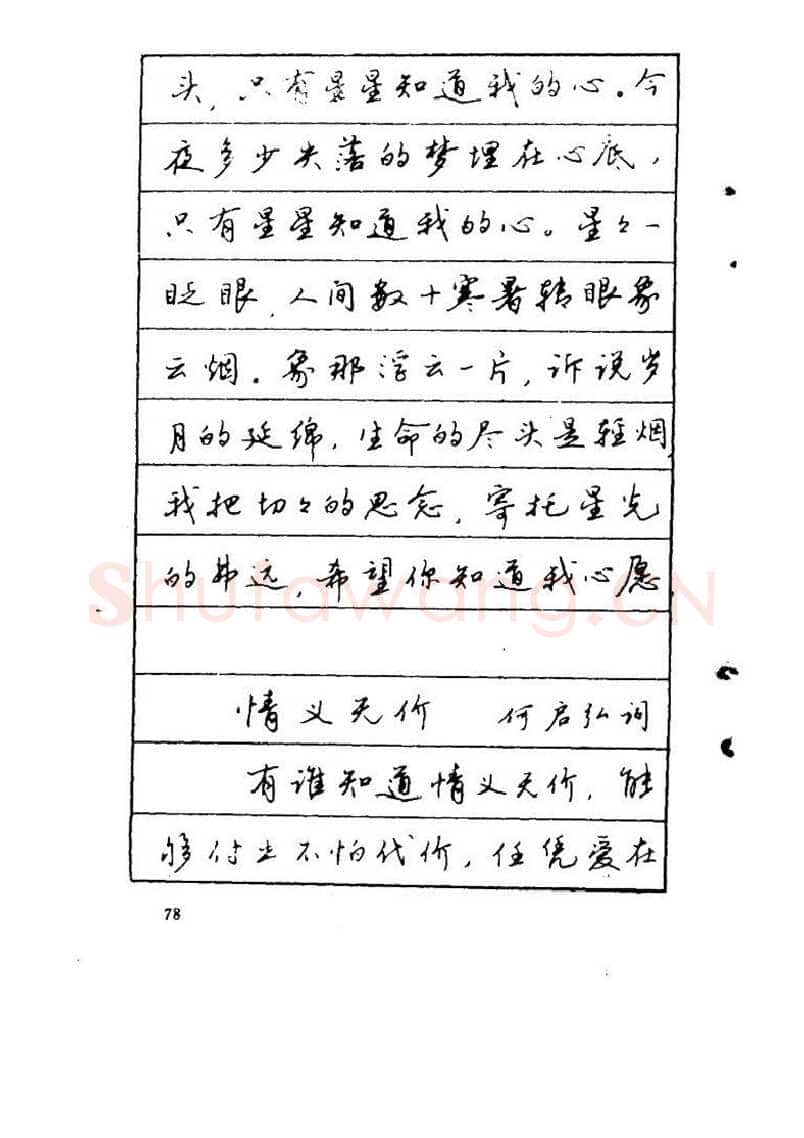 头,只有星星知道我的心。今
夜多少失落的梦埋在心底,
只有星星知道我的心。星々一
眨眼,人间数十寒暑转眼象
云烟。象那浮云一片,诉说岁
月的延绵,生命的尽头是轻烟,
我把切々的思念,寄托星光
的弗远,希望你知道我心愿
shufawang.CN
情义无价 何启弘词
有谁知道情义无价,能
够付出不怕代价,任凭爱在
78